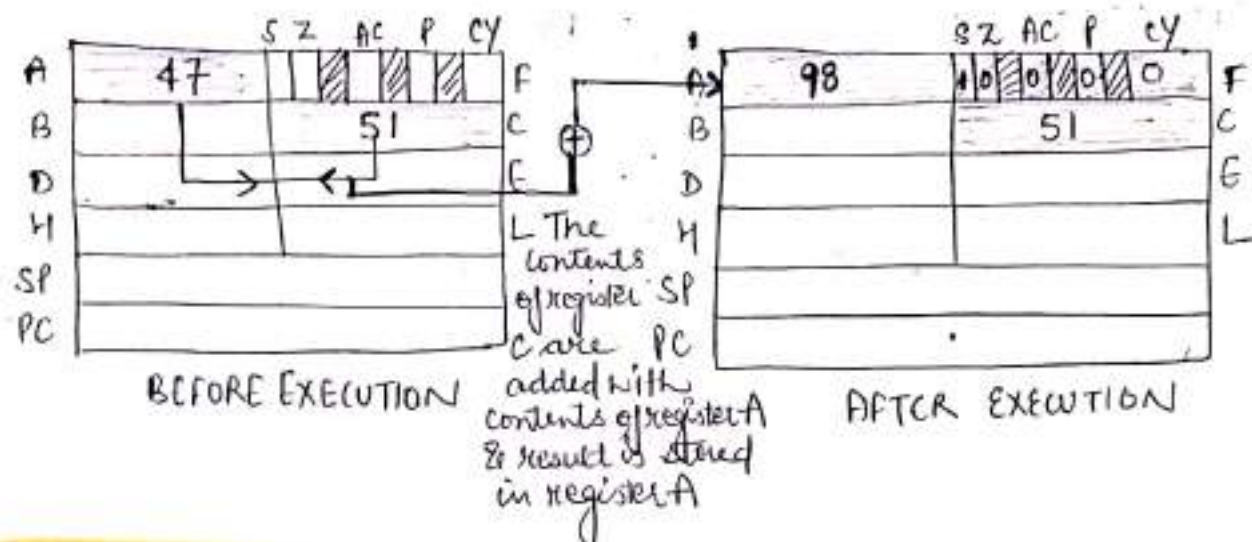 S Z AC P CY
A 47 F
B 51 C
D E
H L
SP
PC
BEFORE EXECUTION
The
contents
of register
C are
added with
contents of register A
& result is stored
in register A
S Z AC P CY
A 98 1 0 0 0 0 F
B 51 C
D E
H L
SP
PC
AFTER EXECUTION